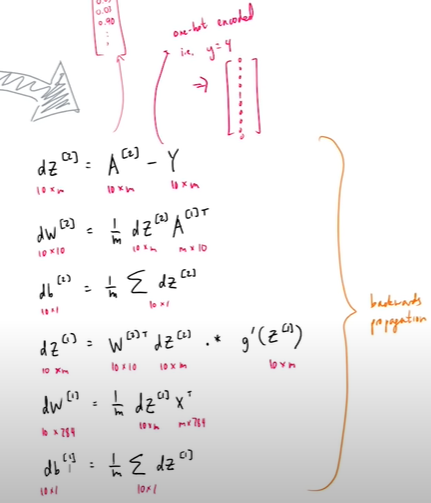 0.05
0.90
one-hot encoded
i.e. y=4
⇒ [0 0 0 0 1 0 0 0 0 0]
dZ^[2] = A^[2] - Y
10 x m 10 x m 10 x m
dW^[2] = 1/m dZ^[2] A^[1]T
10 x 10 10 x m m x 10
db^[2] = 1/m Σ dZ^[2]
10 x 1 10 x 1
dZ^[1] = W^[2]T dZ^[2] .* g'(Z^[1])
10 x m 10 x 10 10 x m 10 x m
dW^[1] = 1/m dZ^[1] X^T
10 x 784 10 x m m x 784
db^[1] = 1/m Σ dZ^[1]
10 x 1 10 x 1
backwards
propagation